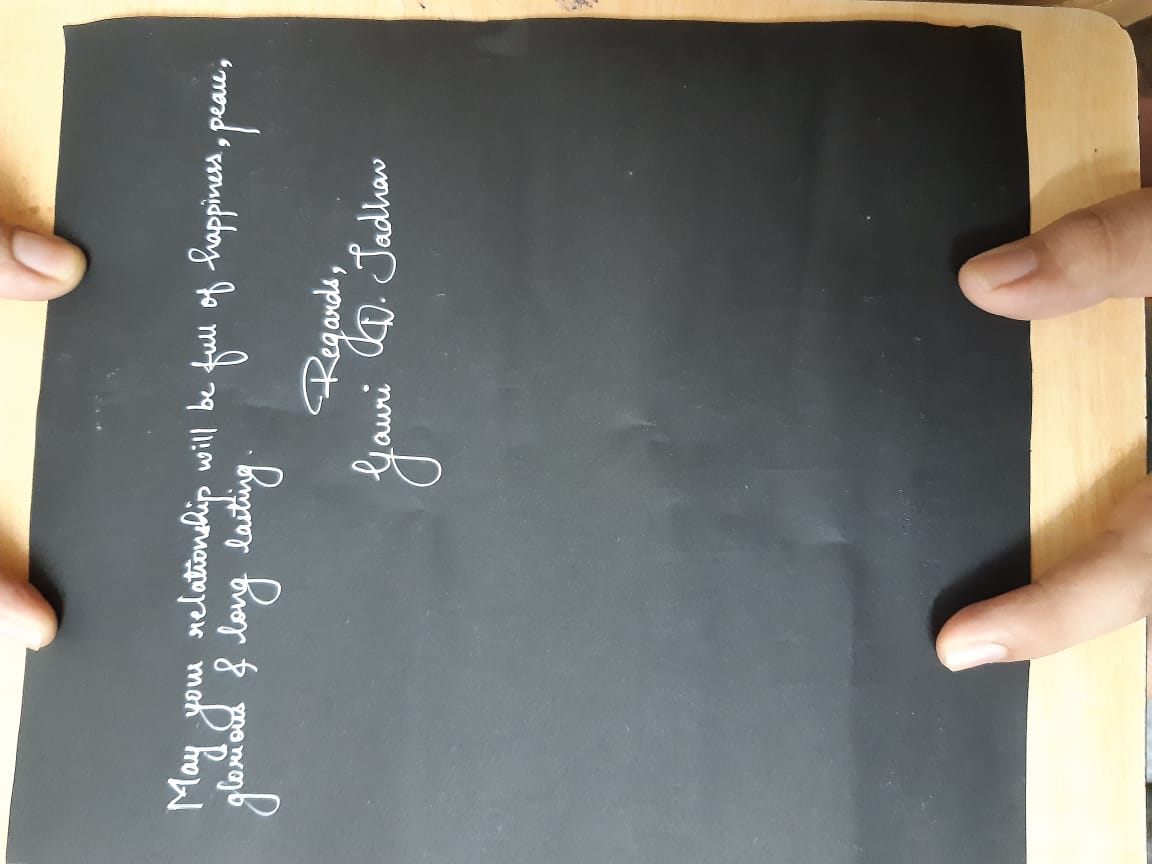 May your relationship will be full of happiness, peace,
glorious & long lasting.
Regards,
Gauri D. Jadhav